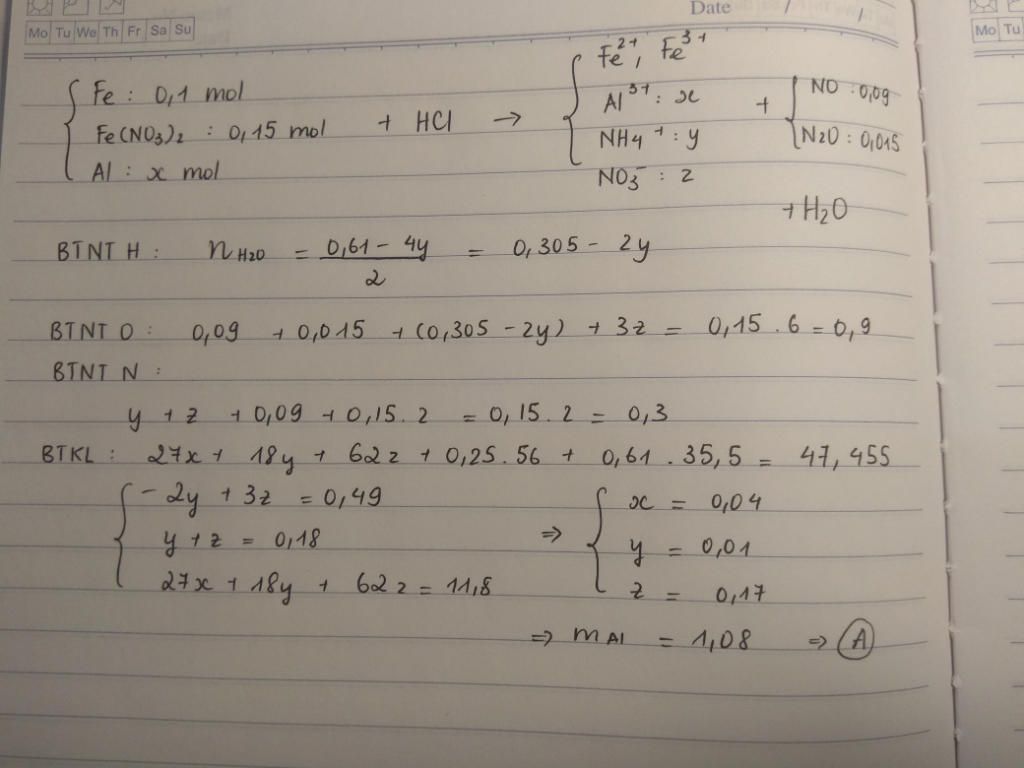 Date / /
Mo Tu We Th Fr Sa Su
Mo Tu
Fe : 0,1 mol
Fe(NO3)2 : 0,15 mol + HCl →
Al : x mol
Fe²⁺, Fe³⁺
Al³⁺ : x
NH4⁺ : y
NO3⁻ : z
+ NO : 0,09
N2O : 0,015
+ H2O
BTNT H : nH2O = (0,61 - 4y)/2 = 0,305 - 2y
BTNT O : 0,09 + 0,015 + (0,305 - 2y) + 3z = 0,15 . 6 = 0,9
BTNT N :
y + z + 0,09 + 0,15 . 2 = 0,15 . 2 = 0,3
BTKL : 27x + 18y + 62z + 0,25 . 56 + 0,61 . 35,5 = 47,455
- 2y + 3z = 0,49
y + z = 0,18
27x + 18y + 62z = 11,8
⇒ x = 0,04
y = 0,01
z = 0,17
⇒ mAl = 1,08 ⇒ A